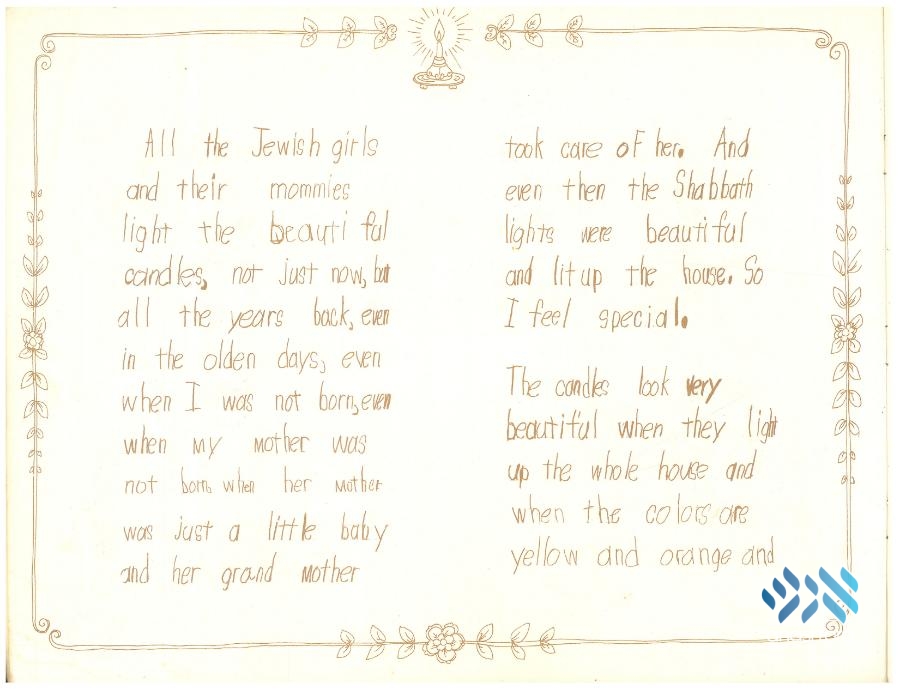 All the Jewish girls
and their mommies
light the beautiful
candles, not just now, but
all the years back, even
in the olden days, even
when I was not born, even
when my mother was
not born, when her mother
was just a little baby
and her grand mother
took care of her. And
even then the Shabbath
lights were beautiful
and lit up the house. So
I feel special.
The candles look very
beautiful when they light
up the whole house and
when the colors are
yellow and orange and